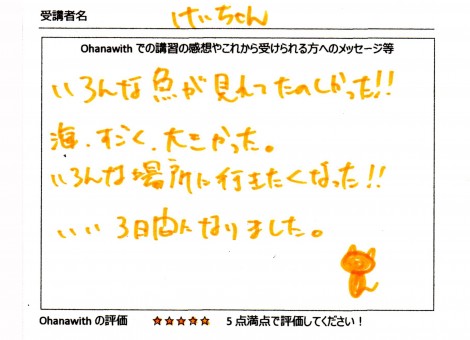 受講者名 けいちゃん
Ohanawith での講習の感想やこれから受けられる方へのメッセージ等
いろんな魚が見れてたのしかった!!
海、すごく、大きかった。
いろんな場所に行きたくなった!!
いい3日間になりました。
Ohanawith の評価 ★★★★★ 5点満点で評価してください！